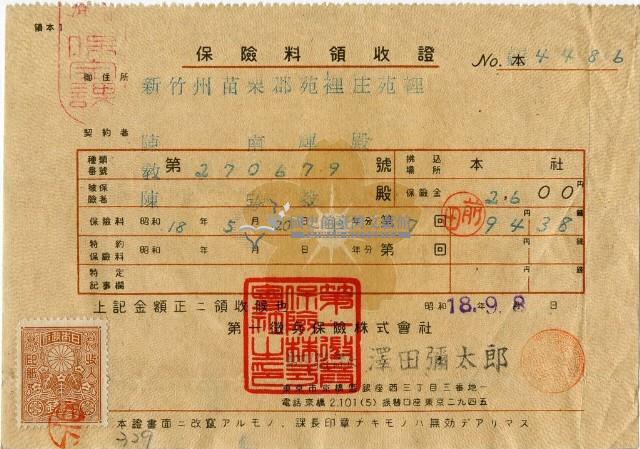 領本1
保險料領收證
No. 本 4486
御住所
新竹州苗栗郡苑裡庄苑裡
契約者
陳 南輝 殿
種類番號 教 第 270679 號 拂込場所 本社
被保險者 陳 弘 殿 保險金 2,600 円
保險料 昭和 18 年 5 月 20 日 年分 第 7 回 94 38
特約保險料 昭和 年 月 日 年分 第 回
特定記事欄
上記金額正ニ領收候也 昭和 18.9.8 日
第一徵兵保險株式會社
澤田彌太郎
東京市京橋區銀座西三丁目三番地一
電話京橋2,101(5) 振替口座東京二九四五
本證書面ニ改竄アルモノ、課長印章ナキモノハ無効デアリマス
329